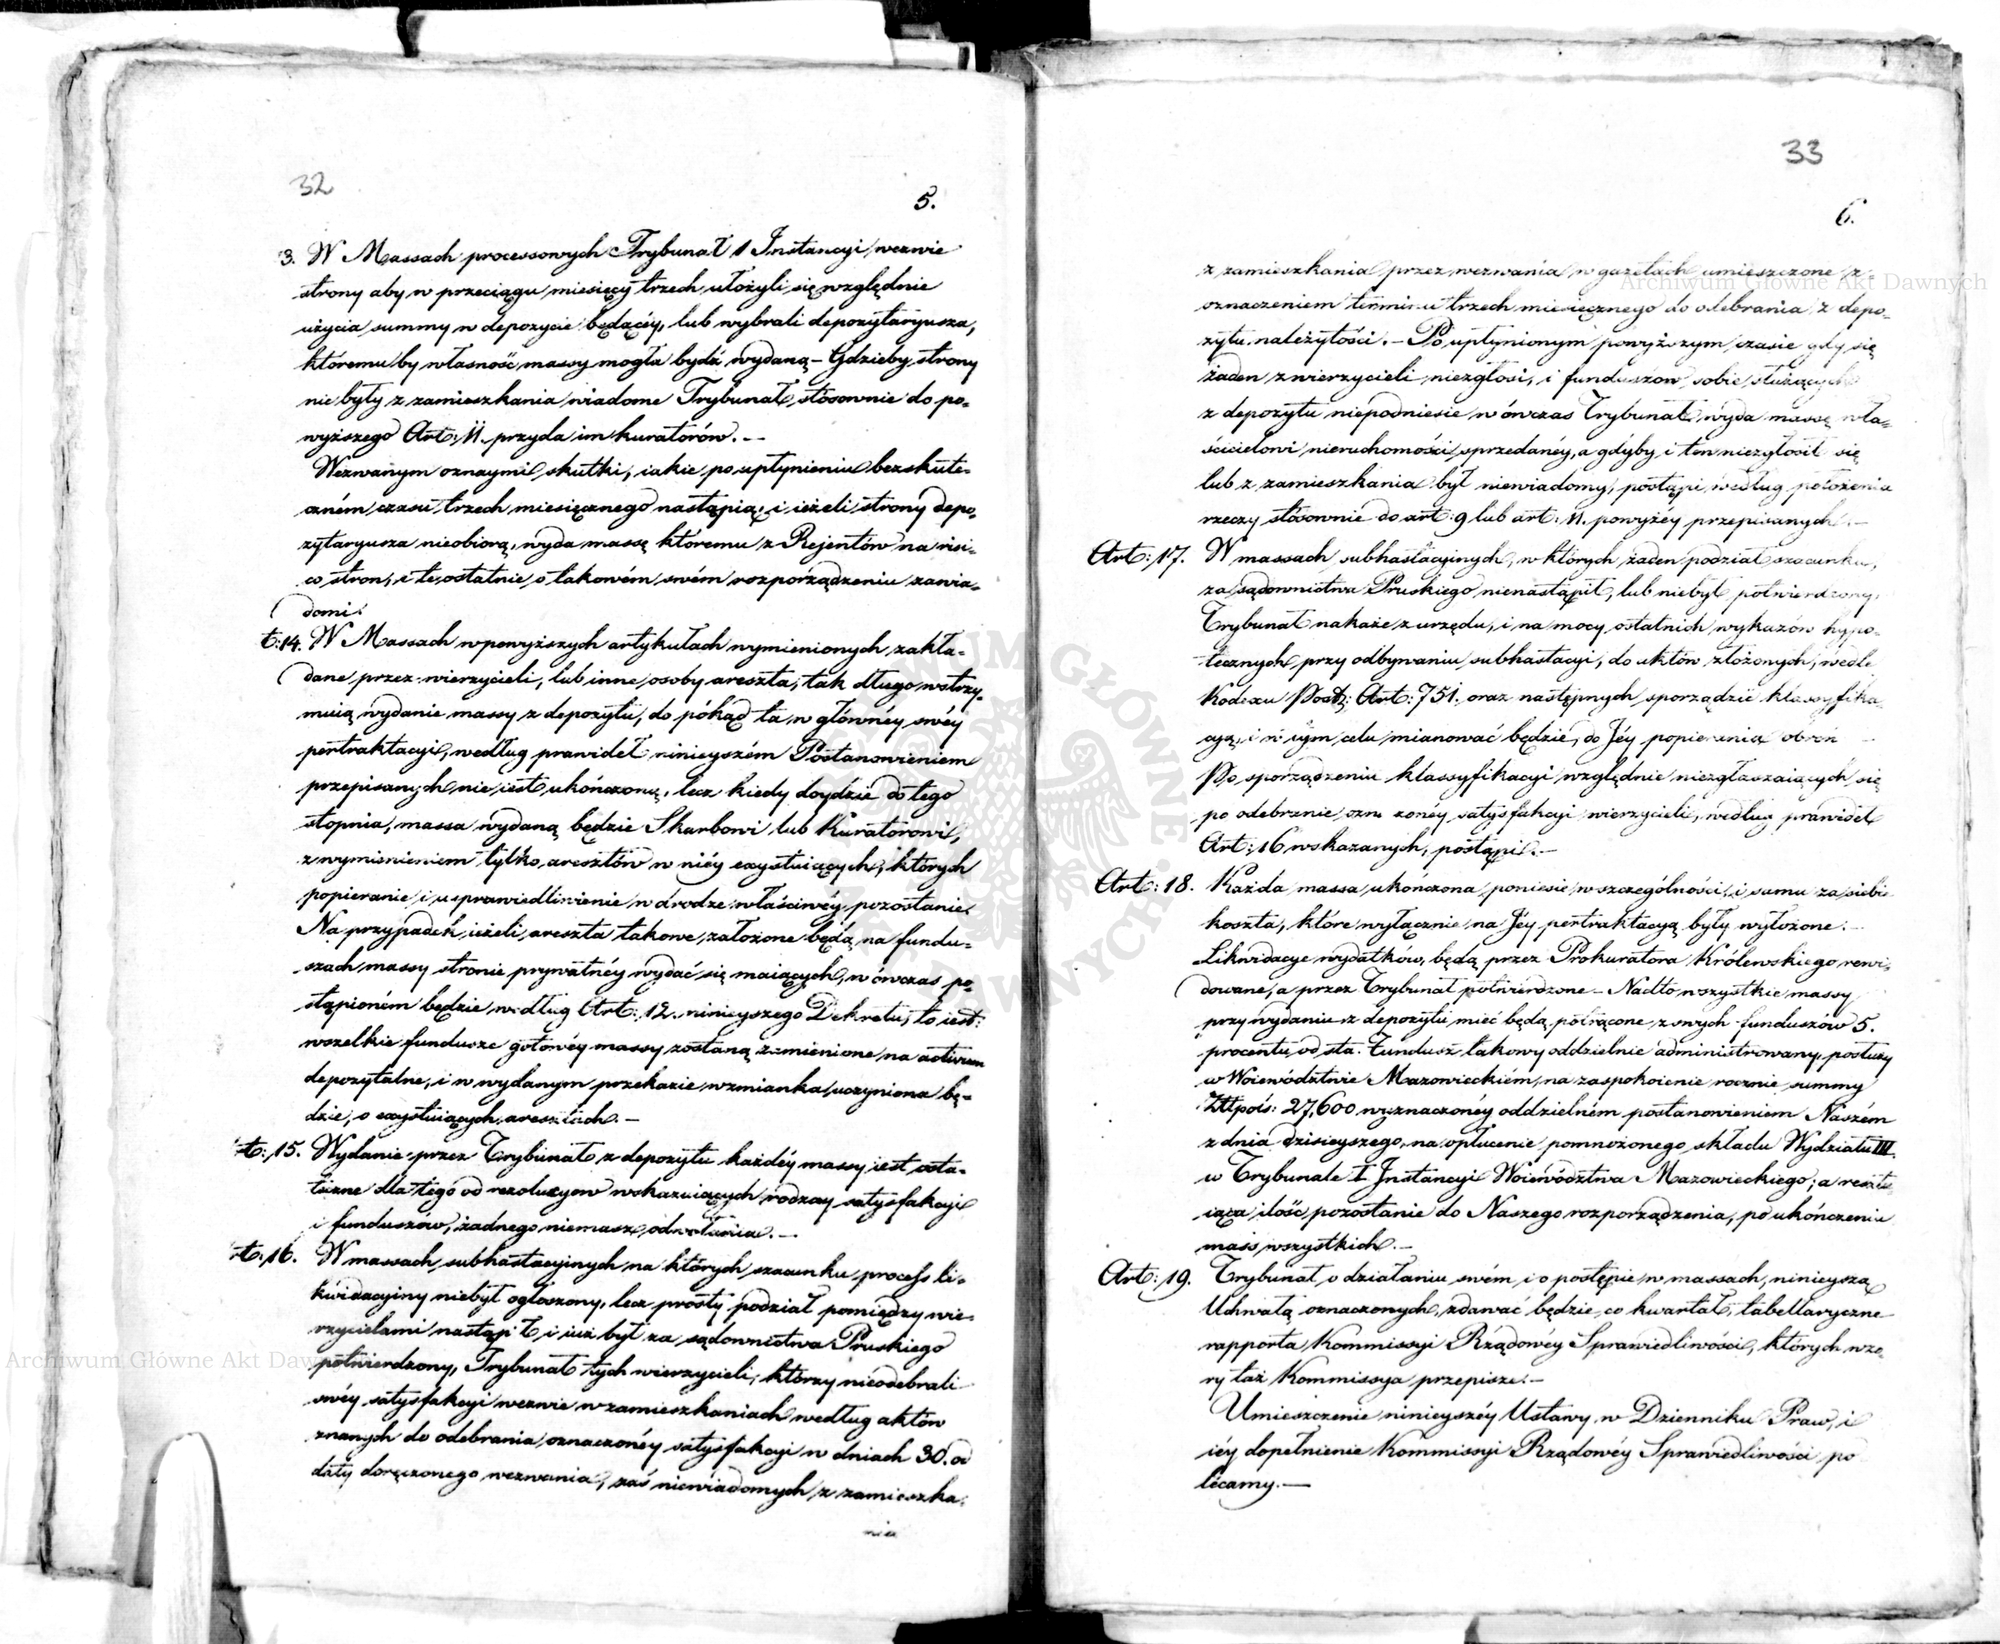 32
5.
3. W Massach processowych Trybunał 1 Instancyi wezwie
strony aby w przeciągu miesięcy trzech ułożyli się względnie
użycia summy w depozycie będącéy, lub wybrali depozytaryusza,
któremuby własność massy mogła bydź wydaną – Gdzieby strony
nie były z zamieszkania wiadome Trybunał stósownie do po-
wyższego Art: 11. przyda im kuratorów. –
Wezwanym oznaymi skutki, iakie po upłynieniu bezskute-
czném czasu trzech miesięcznego nastąpią, i ieżeli strony depo-
zytaryusza nieobiorą, wyda massę któremu z Rejentów na risi-
co stron, i te ostatnie o takowém swém rozporządzeniu zawia-
domi.
t: 14. W Massach w powyższych artykułach wymienionych, zakła-
dane przez wierzycieli, lub inne osoby areszta, tak długo wstrzy-
muią wydanie massy z depozytu, do pókąd ta w głównéy swéy
pertraktacyi, według prawideł ninieyszém Postanowieniem
przepisanych nie iest ukończoną, lecz kiedy doydzie do tego
stopnia, massa wydaną będzie Skarbowi lub Kuratorowi,
z wymienieniem tylko aresztów w niéy exystuiących, których
popieranie i usprawiedliwienie w drodze właściwéy pozostanie.
Na przypadek ieżeli areszta takowe, założone będą na fundu-
szach massy stronie prywatnéy wydać się maiących, w ówczas po-
stąpioném będzie według Art: 12. ninieyszego Dekretu, to iest:
wszelkie fundusze gotowéy massy zostaną zamienione na activum
depozytalne, i w wydanym przekazie wzmianka uczyniona bę-
dzie, o exystuiących aresztach. –
t: 15. Wydanie przez Trybunał z depozytu każdéy massy iest osta-
teczne dla tego od rezolucyow wskazuiących rodzay satysfakcyi
i funduszów, żadnego niemasz odwołania. –
t: 16. W massach subhastacyinych na których szacunku process li-
kwidacyiny niebył ogłoszony, lecz prosty podział pomiędzy wie-
rzycielami nastąpił i iuż był za sądownictwa Pruskiego
potwierdzony, Trybunał tych wierzycieli, którzy nieodebrali
swéy satysfakcyi wezwie w zamieszkaniach według aktów
znanych do odebrania oznaczonéy satysfakcyi w dniach 30. od
daty doręczonego wezwania, zaś niewiadomych z zamieszka-
nia
33
6.
z zamieszkania przez wezwania w gazetach umieszczone z
oznaczeniem terminu trzech miesięcznego do odebrania z depo-
zytu należytości. – Po upłynionym powyższym czasie gdy się
żaden z wierzycieli niezgłosi, i funduszów sobie służących
z depozytu niepodniesie w ówczas Trybunał wyda massę wła-
ścicielowi nieruchomości sprzedanéy, a gdyby i ten niezgłosił się
lub z zamieszkania był niewiadomy, postąpi według położenia
rzeczy stósownie do art: 9 lub art: 11. powyżéy przepisanych. –
Art: 17. W massach subhastacyinych, w których żaden podział szacunku,
za sądownictwa Pruskiego nienastąpił, lub niebył potwierdzony,
Trybunał nakaże z urzędu, i na mocy ostatnich wykazów hypo-
tecznych przy odbywaniu subhastacyi, do aktów złożonych, wedle
Kodexu Post: Art: 751. oraz następnych sporządzić klassyfika-
cyą, i w tym celu mianować będzie, do Jéy popierania obroń
Po sporządzeniu klassyfikacyi względnie niezgłaszaiących się
po odebranie ozna zonéy satysfakcyi wierzycieli, według prawideł
Art: 16 wskazanych, postąpi. –
Art: 18. Każda massa ukończona poniesie w szczególności, i sama za siebie
koszta, które wyłącznie na Jéy pertraktacyą były wyłożone. –
Likwidacye wydatków, będą przez Prokuratora Królewskiego rewi-
dowane, a przez Trybunał potwierdzone – Nadto wszystkie massy
przy wydaniu z depozytu mieć będą potrącone z swych funduszów 5.
procentu od sta. Fundusz takowy oddzielnie administrowany, posłuży
w Woiewództwie Mazowieckiém, na zaspokoienie rocznie summy
Złłpols: 27,600 wyznaczonéy oddzielném postanowieniem Naszém
z dnia dzisieyszego, na opłacenie pomnożonego składu Wydziału III
w Trybunale I Instancyi Woiewództwa Mazowieckiego; a reszta
iąca ilość pozostanie do Naszego rozporządzenia, po ukończeniu
mass wszystkich. –
Art: 19. Trybunał o działaniu swém i o postępie w massach, ninieyszą
Uchwałą oznaczonych, zdawać będzie co kwartał, tabellaryczne
rapporta Kommissyi Rządowéy Sprawiedliwości, których wzo-
ry taż Kommissya przepisze. –
Umieszczenie ninieyszéy Ustawy w Dzienniku Praw, i
iéy dopełnienie Kommissyi Rządowéy Sprawiedliwości po
lecamy. –
Archiwum Główne Akt Dawnych
Archiwum Główne Akt Daw
ARCHIWUM GŁÓWNE AKT DAWNYCH